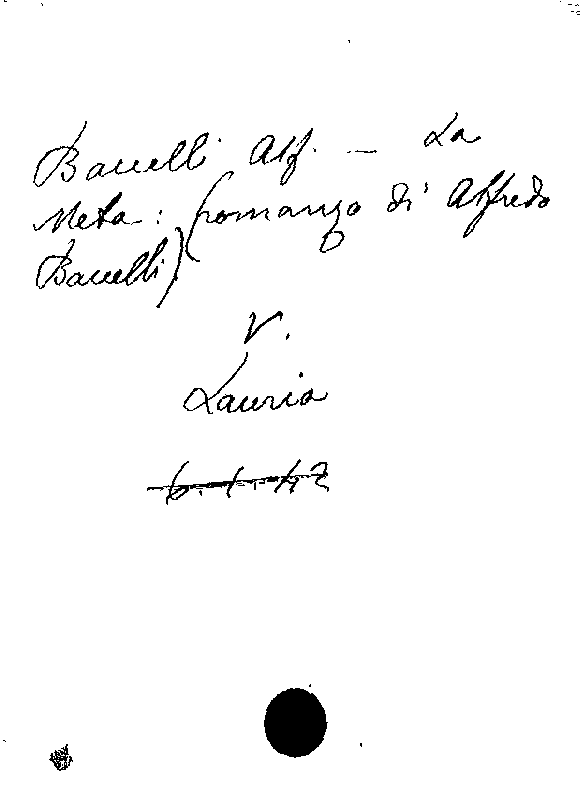 Baccelli Alf. — La
Meta: (romanzo di Alfredo
Baccelli)
V.
Lauria
6.1.42